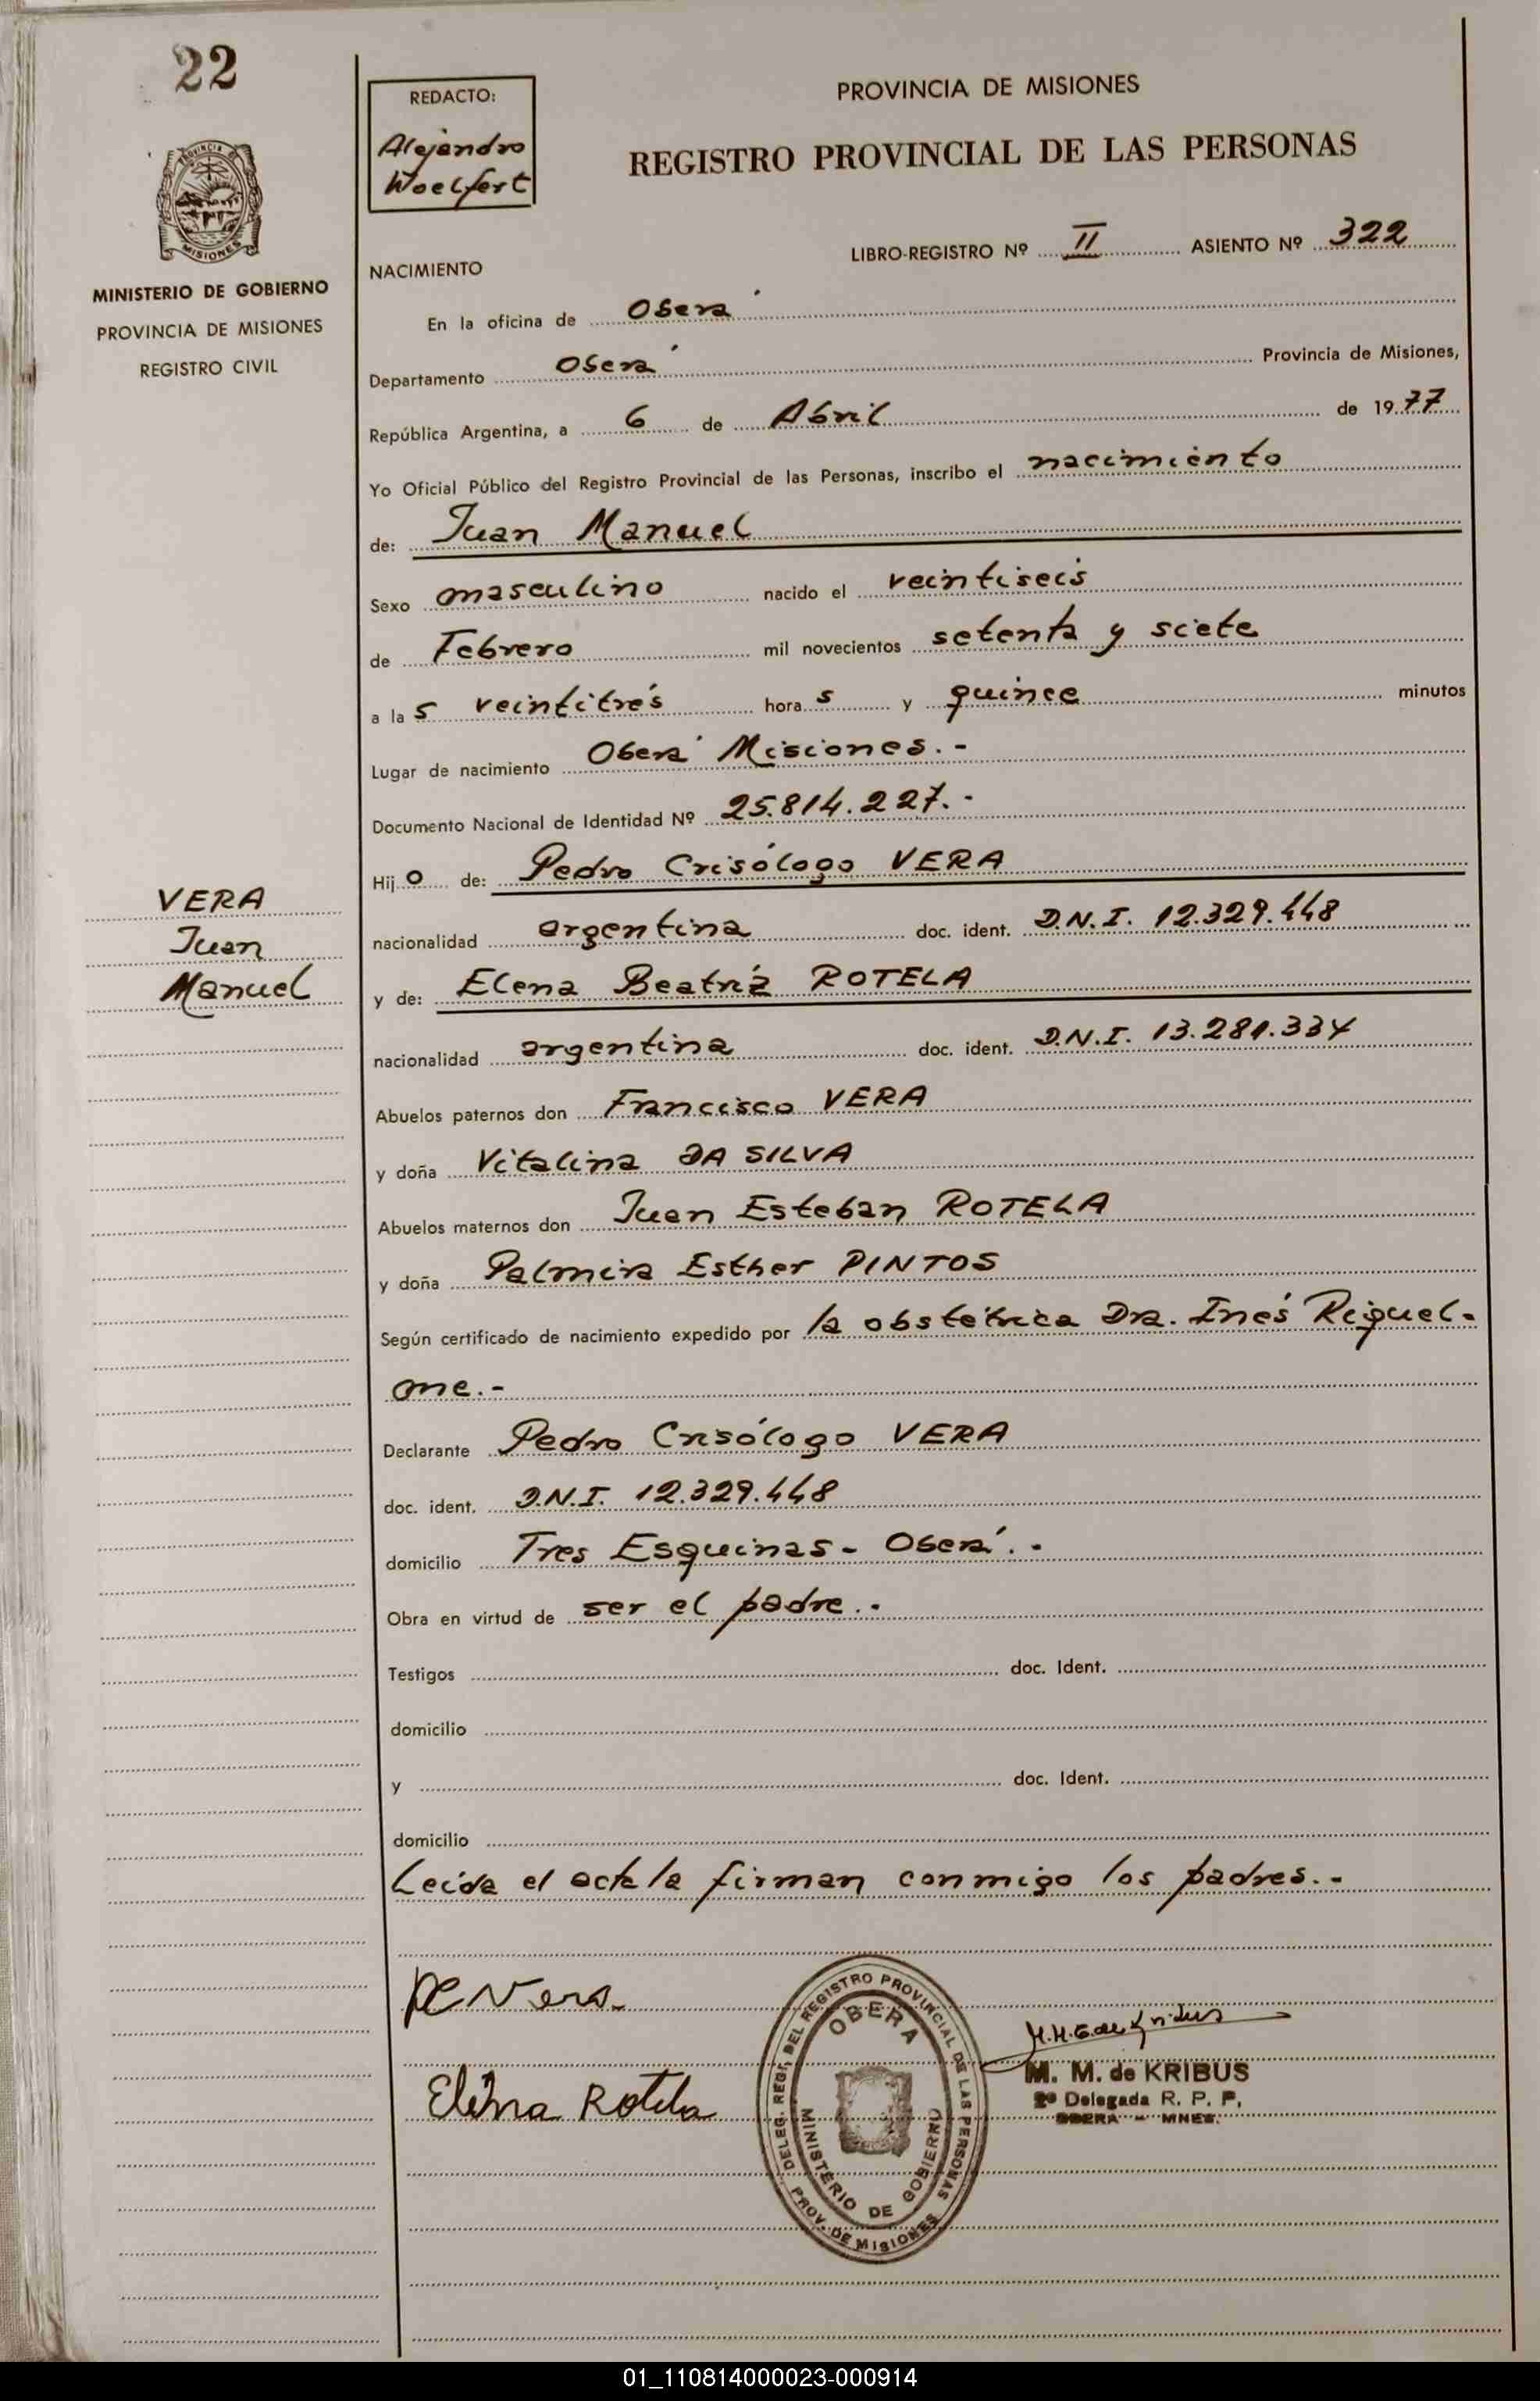 22
REDACTO:
Alejandro
Woelfert
PROVINCIA DE MISIONES
REGISTRO PROVINCIAL DE LAS PERSONAS
PROVINCIA DE
MISIONES
MINISTERIO DE GOBIERNO
PROVINCIA DE MISIONES
REGISTRO CIVIL
LIBRO-REGISTRO Nº II ASIENTO Nº 322
NACIMIENTO
En la oficina de Oberá
Departamento Oberá Provincia de Misiones,
República Argentina, a 6 de Abril de 1977
Yo Oficial Público del Registro Provincial de las Personas, inscribo el nacimiento
de: Juan Manuel
Sexo masculino nacido el veintiseis
de Febrero mil novecientos setenta y siete
a las veintitrés horas y quince minutos
Lugar de nacimiento Oberá Misiones.-
Documento Nacional de Identidad Nº 25.814.227.-
Hijo de: Pedro Crisólogo VERA
VERA
Juan
Manuel
nacionalidad argentina doc. ident. D.N.I. 12.329.448
y de: Elena Beatríz ROTELA
nacionalidad argentina doc. ident. D.N.I.
Abuelos paternos don Francisco VERA
y doña Vitalina DA SILVA
Abuelos maternos don Juan Esteban ROTELA
y doña Palmira Esther PINTOS
Según certificado de nacimiento expedido por la obstétrica Dra. Inés Riquel-
me.-
Declarante Pedro Crisólogo VERA
doc. ident. D.N.I. 12.329.448
domicilio Tres Esquinas - Oberá.-
Obra en virtud de ser el padre.-
Testigos doc. Ident.
domicilio
y doc. Ident.
domicilio
Leída el acta la firman conmigo los padres.-
PC Vera
Elena Rotela
DELEG. REGI. DEL REGISTRO PROVINCIAL DE LAS PERSONAS
OBERA
MINISTERIO DE GOBIERNO
PROV. DE MISIONES
M. M. de KRIBUS
2º Delegada R. P. P.
OBERA - MNES.
01_110814000023-000914